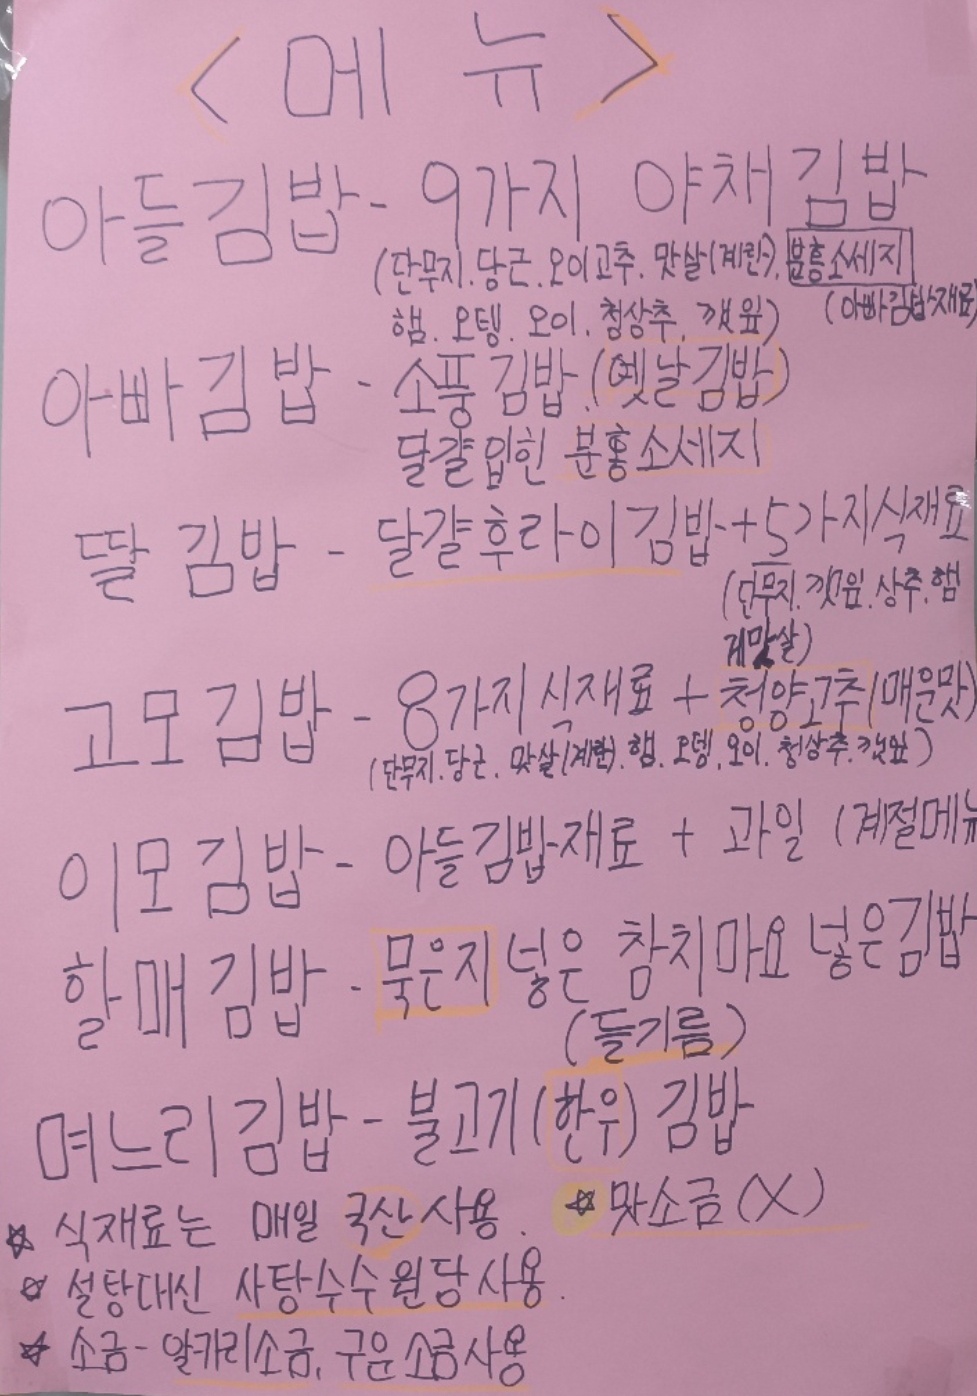 <메 뉴>
아들김밥 - 9가지 야채김밥
(단무지.당근.오이고추.맛살(계란), 분홍소세지
(아빠김밥재료)
햄. 오뎅. 오이. 청상추. 깻잎)
아빠김밥 - 소풍김밥.(옛날김밥)
달걀입힌 분홍소세지
딸 김밥 - 달걀후라이김밥+5가지식재료
(단무지.깻잎.상추.햄
게맛살)
고모김밥 - 8가지식재료 + 청양고추(매운맛)
(단무지.당근. 맛살(계란).햄.오뎅.오이.청상추.깻잎)
이모김밥 - 아들김밥재료 + 과일 (계절메뉴
할매김밥 - 묵은지 넣은 참치마요 넣은김밥
(들기름)
며느리김밥 - 불고기(한우)김밥
☆ 식재료는 매일 국산사용. ☆맛소금(X)
☆ 설탕대신 사탕수수원당사용.
☆ 소금-알카리소금, 구운소금사용